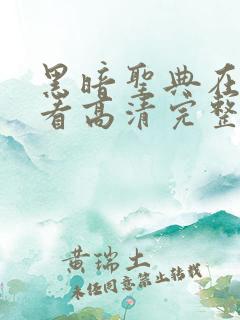 黑暗聖典在
看高清完整
黄瑞土
未经同意禁止转载